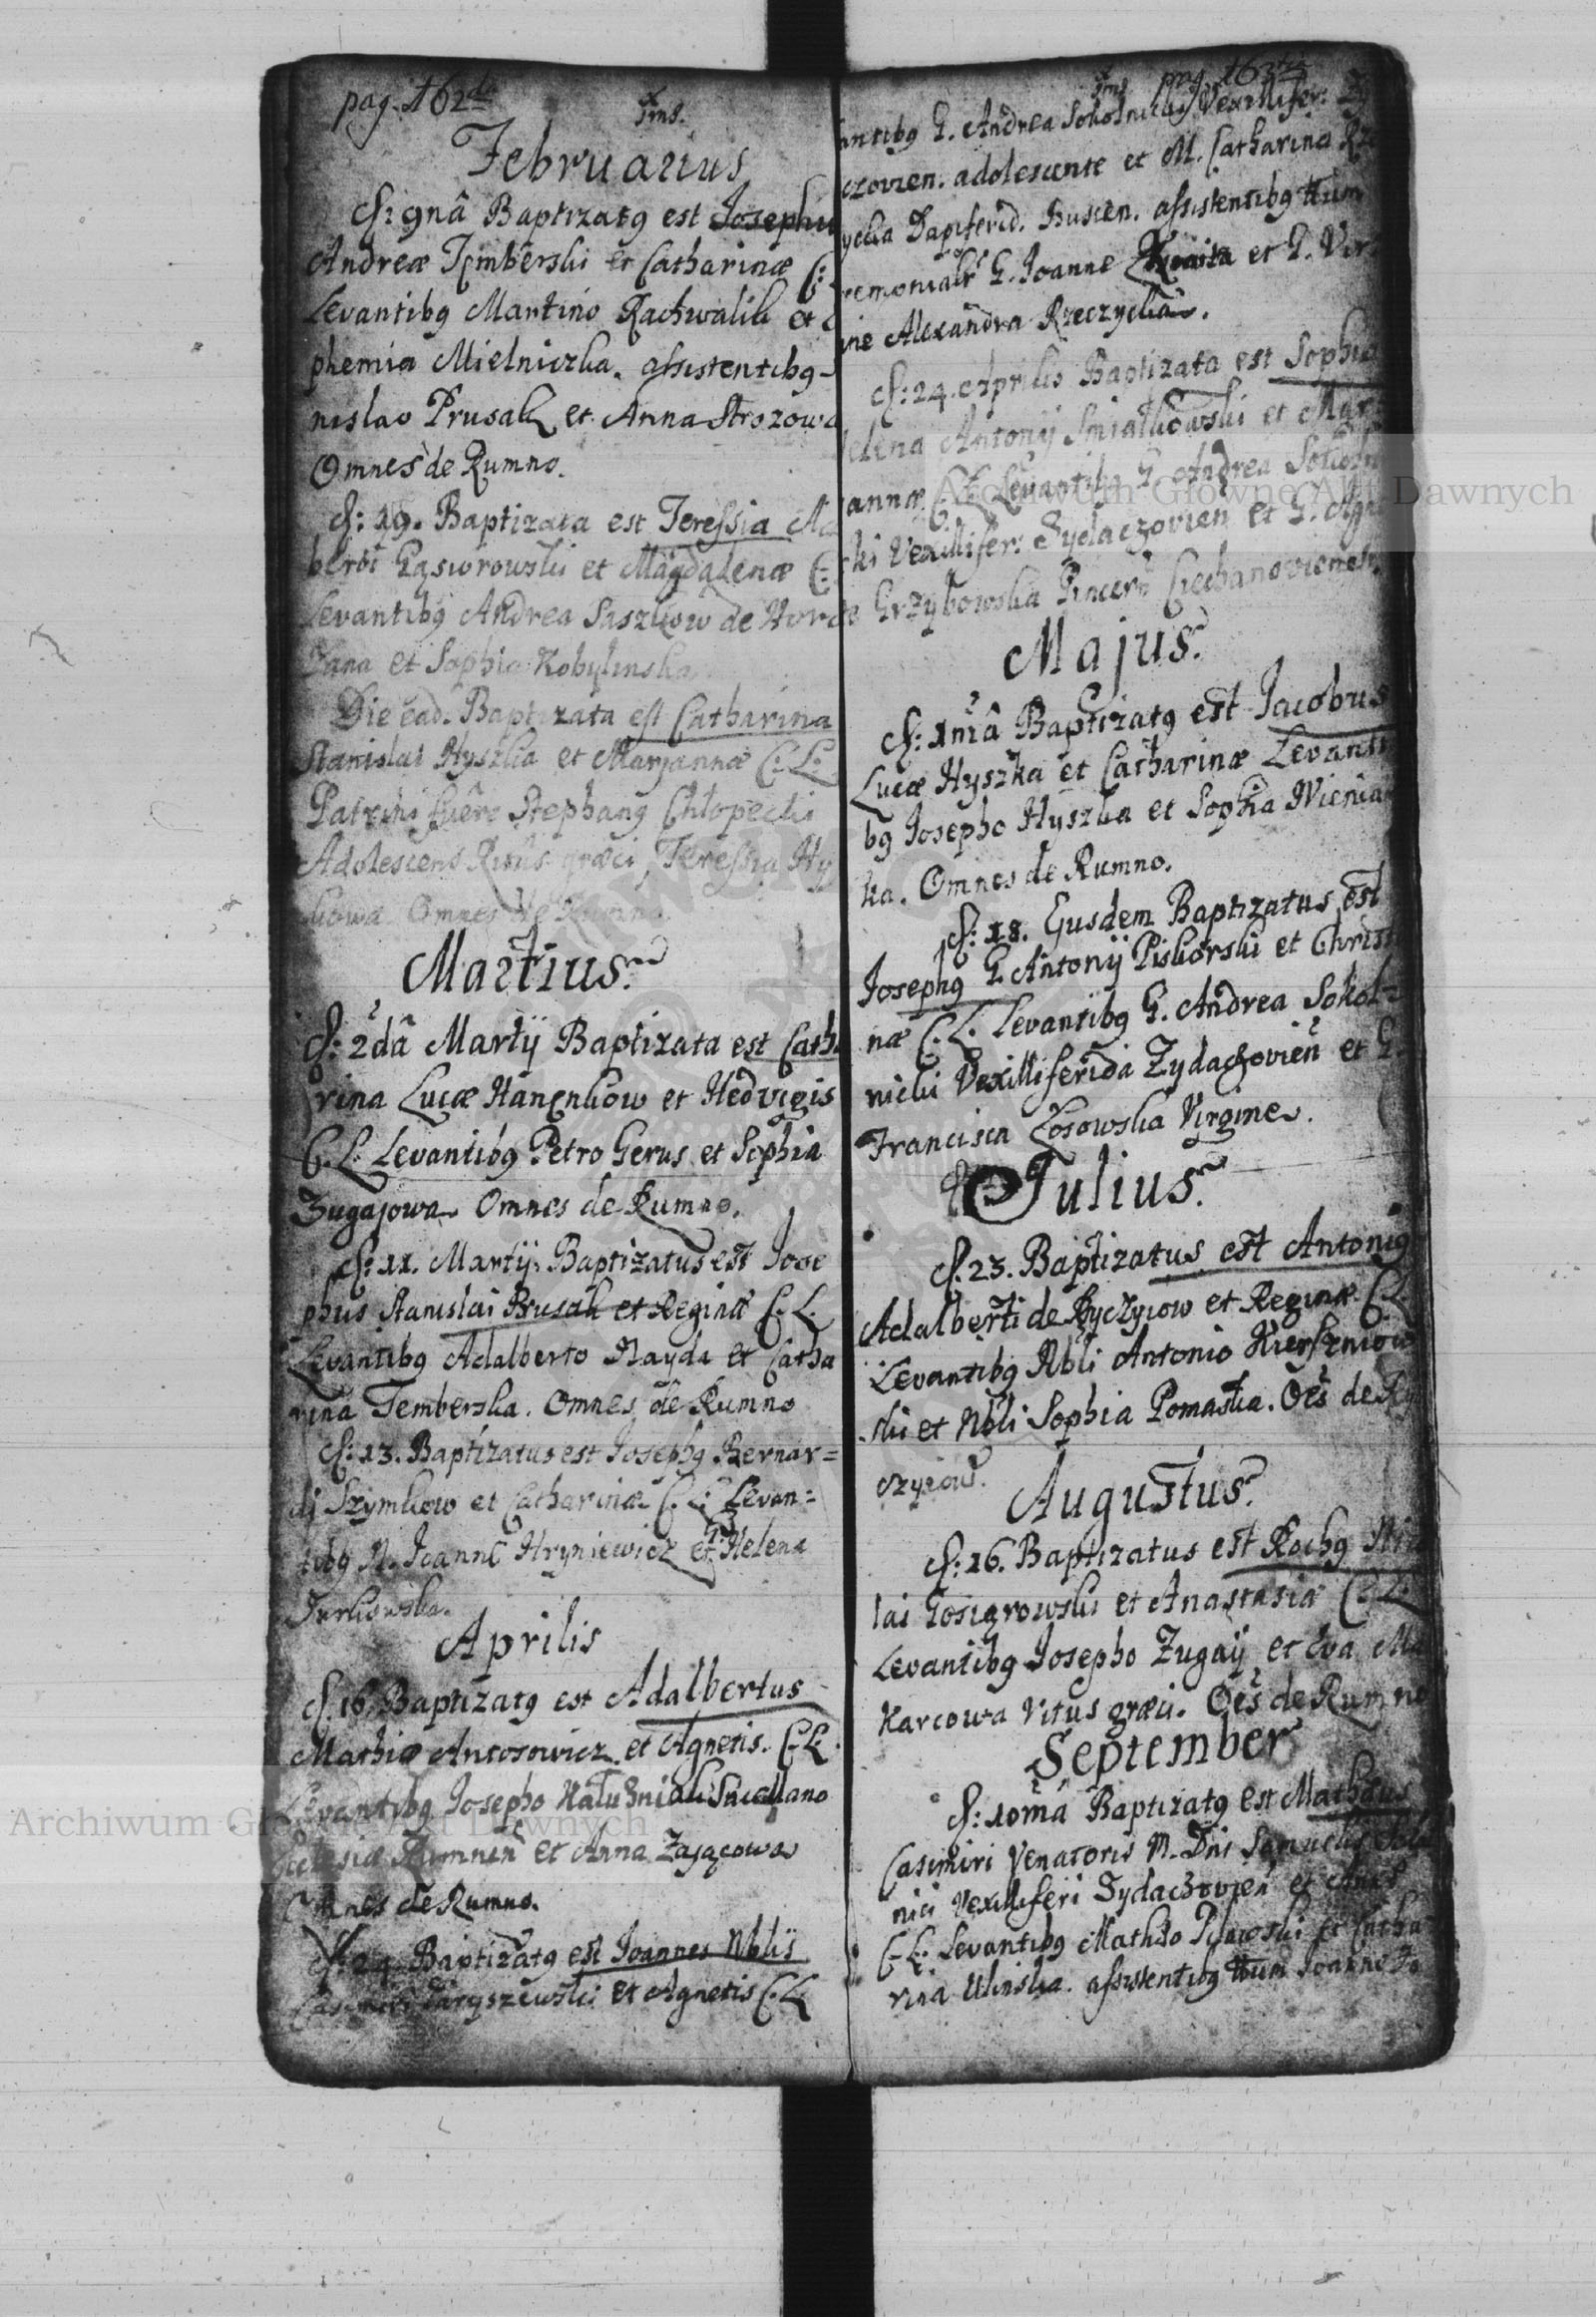 pag. 162da
Februarius
d: 9nâ Baptizatg est Josephu
Andreæ Tembérski et Catharinæ C:
Levantibg Martino Rachwalik et
phemia Mielniczka. assistentibg
nislao Prusak et Anna Strozowa
Omnes de Rumno.
d: 19. Baptizata est Teressia
berti Gąsiorowski et Magdalenæ C:
Levantibg Andrea Saszkow de Horo
żana et Sophia Kobylinska
Die ead. Baptizata est Catharina
Stanislai Hyszka et Marjannæ C: L:
Patrini fuêre Stephang Chłopecki
Adolescens Ritûs græci, Teressia Hy
kowa Omnes de Rumno
Martius
d: 2dâ Martij Baptizata est Catha
rina Lucæ Hanenkow et Hedvigis
C. L. Levantibg Petro Gerus et Sophia
Zugajowa Omnes de Rumno.
d: 11. Martij Baptizatus est Jose
phus Stanislai Prusak et Reginæ C. L.
Levantibg Adalberto Nayda et Catha
rina Temberska. Omnes de Rumno
d: 13. Baptizatus est Josephg Bernar=
di Szymkow et Catharinæ C. L: Levan=
tibg N. Joanne Hryniewicz et G. Helena
Turkowska.
Aprilis
d. 16. Baptizatg est Adalbertus
Mathiæ Antosowicz et Agnetis. C: L:
Levantibg Josepho Kałużniak
Ecclesiæ Rumnen et Anna Zającowa
Omnes de Rumno.
d: 24. Baptizatg est Joannes Nblis
Casimiri et Agnetis C. L
pag. 163tia
antibg G. Andrea Sokolnicki Vexillifer:
czovien. adolescente et M. Catharina Rze
ycka Dapiferid. Buscen. assistentibg ttum
remoniale G. Joanne et G. Vir
ine Alexandra Rzeczycka.
d: 24. Aprilis Baptizata est Sophia
lelena Antonij Smiałkowski et Mar
annæ C. L. Levantibg G. Andrea Sokoln
ki Vexillifer: Zydaczovien et G. Agne
Grzybowska Pincern Ciechanoviensi.
Majus.
d: 1mâ Baptizatg est Jacobus
Lucæ Hyszka et Catharinæ Levanti
bg Josepho Hyszka et Sophia Wienia
ka. Omnes de Rumno.
d: 18. Ejusdem Baptizatus est
Josephg G. Antonij Piskorski et Christi
næ C. L. Levantibg G. Andrea Sokol=
nicki Vexilliferida Zydaczovien et G.
Francisca Łosowska Virgine.
Julius.
d. 23. Baptizatus est Antonig
Adalberti de Ryczyiow et Reginæ C. L.
Levantibg Nbli Antonio Kierszniow
ski et Nbli Sophia Pomaska. Oës de Ry
czyiow.
Augustus.
d: 16. Baptizatus est Rochg Nico
lai Gosigrowski et Anastasiæ C. L.
Levantibg Josepho Zugaij et Eva Ma
karcowa ritus græci. Oës de Rumno
September
d: 10mâ Baptizatg est Mathæus
Casimiri Venatoris M. Dni Samuelis Sokol
nici Vexilliferi Zydaczovien et
C. L. Levantibg Mathæo Pilawski et Catha
rina Ulinska. assistentibg ttum Joanne
Archiwum Główne Akt Dawnych
Archiwum Główne Akt Dawnych